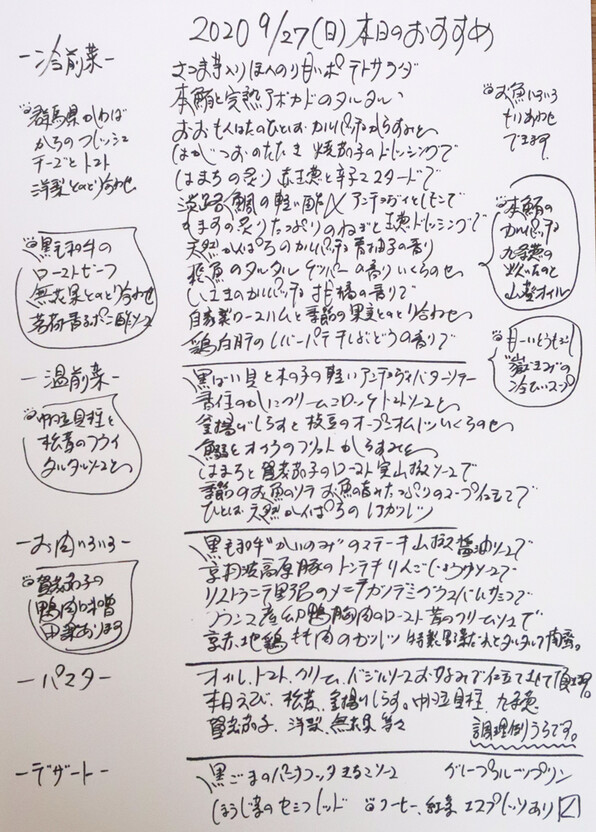 2020 9/27(日)本日のおすすめ
ー冷前菜ー
さつま芋入りほんのり甘いポテトサラダ
本鮪と完熟アボカドのタルタル
はがつおのたたき 焼茄子のドレッシングで
はまちの炙り 赤玉葱と辛子マスタードで
淡路 鯛の軽い酢〆 アンチョヴィとレモンで
かますの炙り たっぷりのねぎと玉葱ドレッシングで
天然かんぱちのカルパッチョ 青柚子の香り
のタルタル ケッパーの香り いくらのせ
しまあじのカルパッチョ の香りで
自家製ロースハムと季節の果実とのとり合わせ
鶏白肝のレバーパテ 干しぶどうの香りで
群馬県かわば
からのフレッシュ
チーズと トマト
洋梨とのとり合わせ
黒毛和牛の
ローストビーフ
無花果とのとり合わせ
茗荷香るポン酢ソース
お魚いろいろ
もりあわせ
できます。
本鮪の
カルパッチョ
九条葱の
炊いたのと
山椒オイル
甘ーいとうもろこし
冷たいスープ
ー温前菜ー
黒ばい貝と木の子の軽いアンチョヴィバターソテー
香住のかにクリームコロッケ トマトソースと
釜揚げしらすと枝豆のオープンオムレツ いくらのせ
とオクラのフリット からすみと
はまちと賀茂茄子のロースト 実山椒ソースで
季節のお魚のソテー お魚の旨みたっぷりのスープ仕立てで
ひとくち天然かんぱちのカツレツ
帆立貝柱と
松茸のフライ
タルタルソースと
ーお肉いろいろー
黒毛和牛"かいのみ"のステーキ 山椒醤油ソースで
京丹波高原豚のトンテキ りんごしょうゆソースで
フランス産幼鴨胸肉のロースト 茸のクリームソースで
京赤地鶏もも肉のカツレツ 特製とタルタルで
賀茂茄子の
鴨肉味噌
田楽あります
ーパスター
オイル、トマト、クリーム、バジルソース お好みで仕立てさせて頂きます。
本日えび、松茸、釜揚げしらす、帆立貝柱、九条葱、
賀茂茄子、洋梨、無花果 等々
調理例うらです。
ーデザートー
黒ごまのパンナコッタ きなこソース グレープフルーツプリン
ほうじ茶のセミフレッド コーヒー、紅茶 エスプレッソあり〼